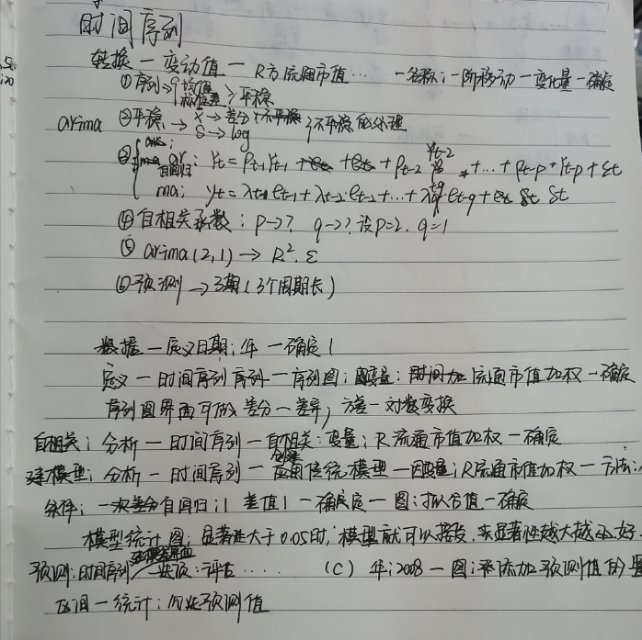 时间序列
转换 — 变动值 — R方流通市值… — 名称：一阶移动 — 变化量 — 确定
①序列→ 均值 标准差 > 平稳
arima ②平稳→ x̄→差分 不平稳 S→log 不平稳的处理
③ ar: yt = ρt-1 yt-1 + ρt-2 yt-2 + … + ρt-p yt-p + εt
自回归
ma: yt = λt-1 et-1 + λt-2 et-2 + … + et-q + εt
④自相关函数：p→? q→? 设p=2. q=1
⑤ arima(2,1)→ R². Σ
⑥预测→3期(3个周期长)
数据 — 定义日期：年 — 确定
定义 — 时间序列 序列 — 序列图：变量：流通市值加权 — 确定
序列图界面可做 差分 — 差异，方差 — 对数变换
自相关：分析 — 时间序列 — 自相关：变量：R流通市值加权 — 确定
建模型：分析 — 时间序列 — 创建传统模型 — 因变量：R流通市值加权 — 方法：
条件：一次差分自回归：1 差值1 — 确定 — 图：拟合值 — 确定
模型统计图：显著性大于0.05时，模型就可以接受，显著性越大越好.
预测：时间序列 — 选项：评估…… (C) 年：2008 — 图：添加预测值的
应用 — 统计：预测值